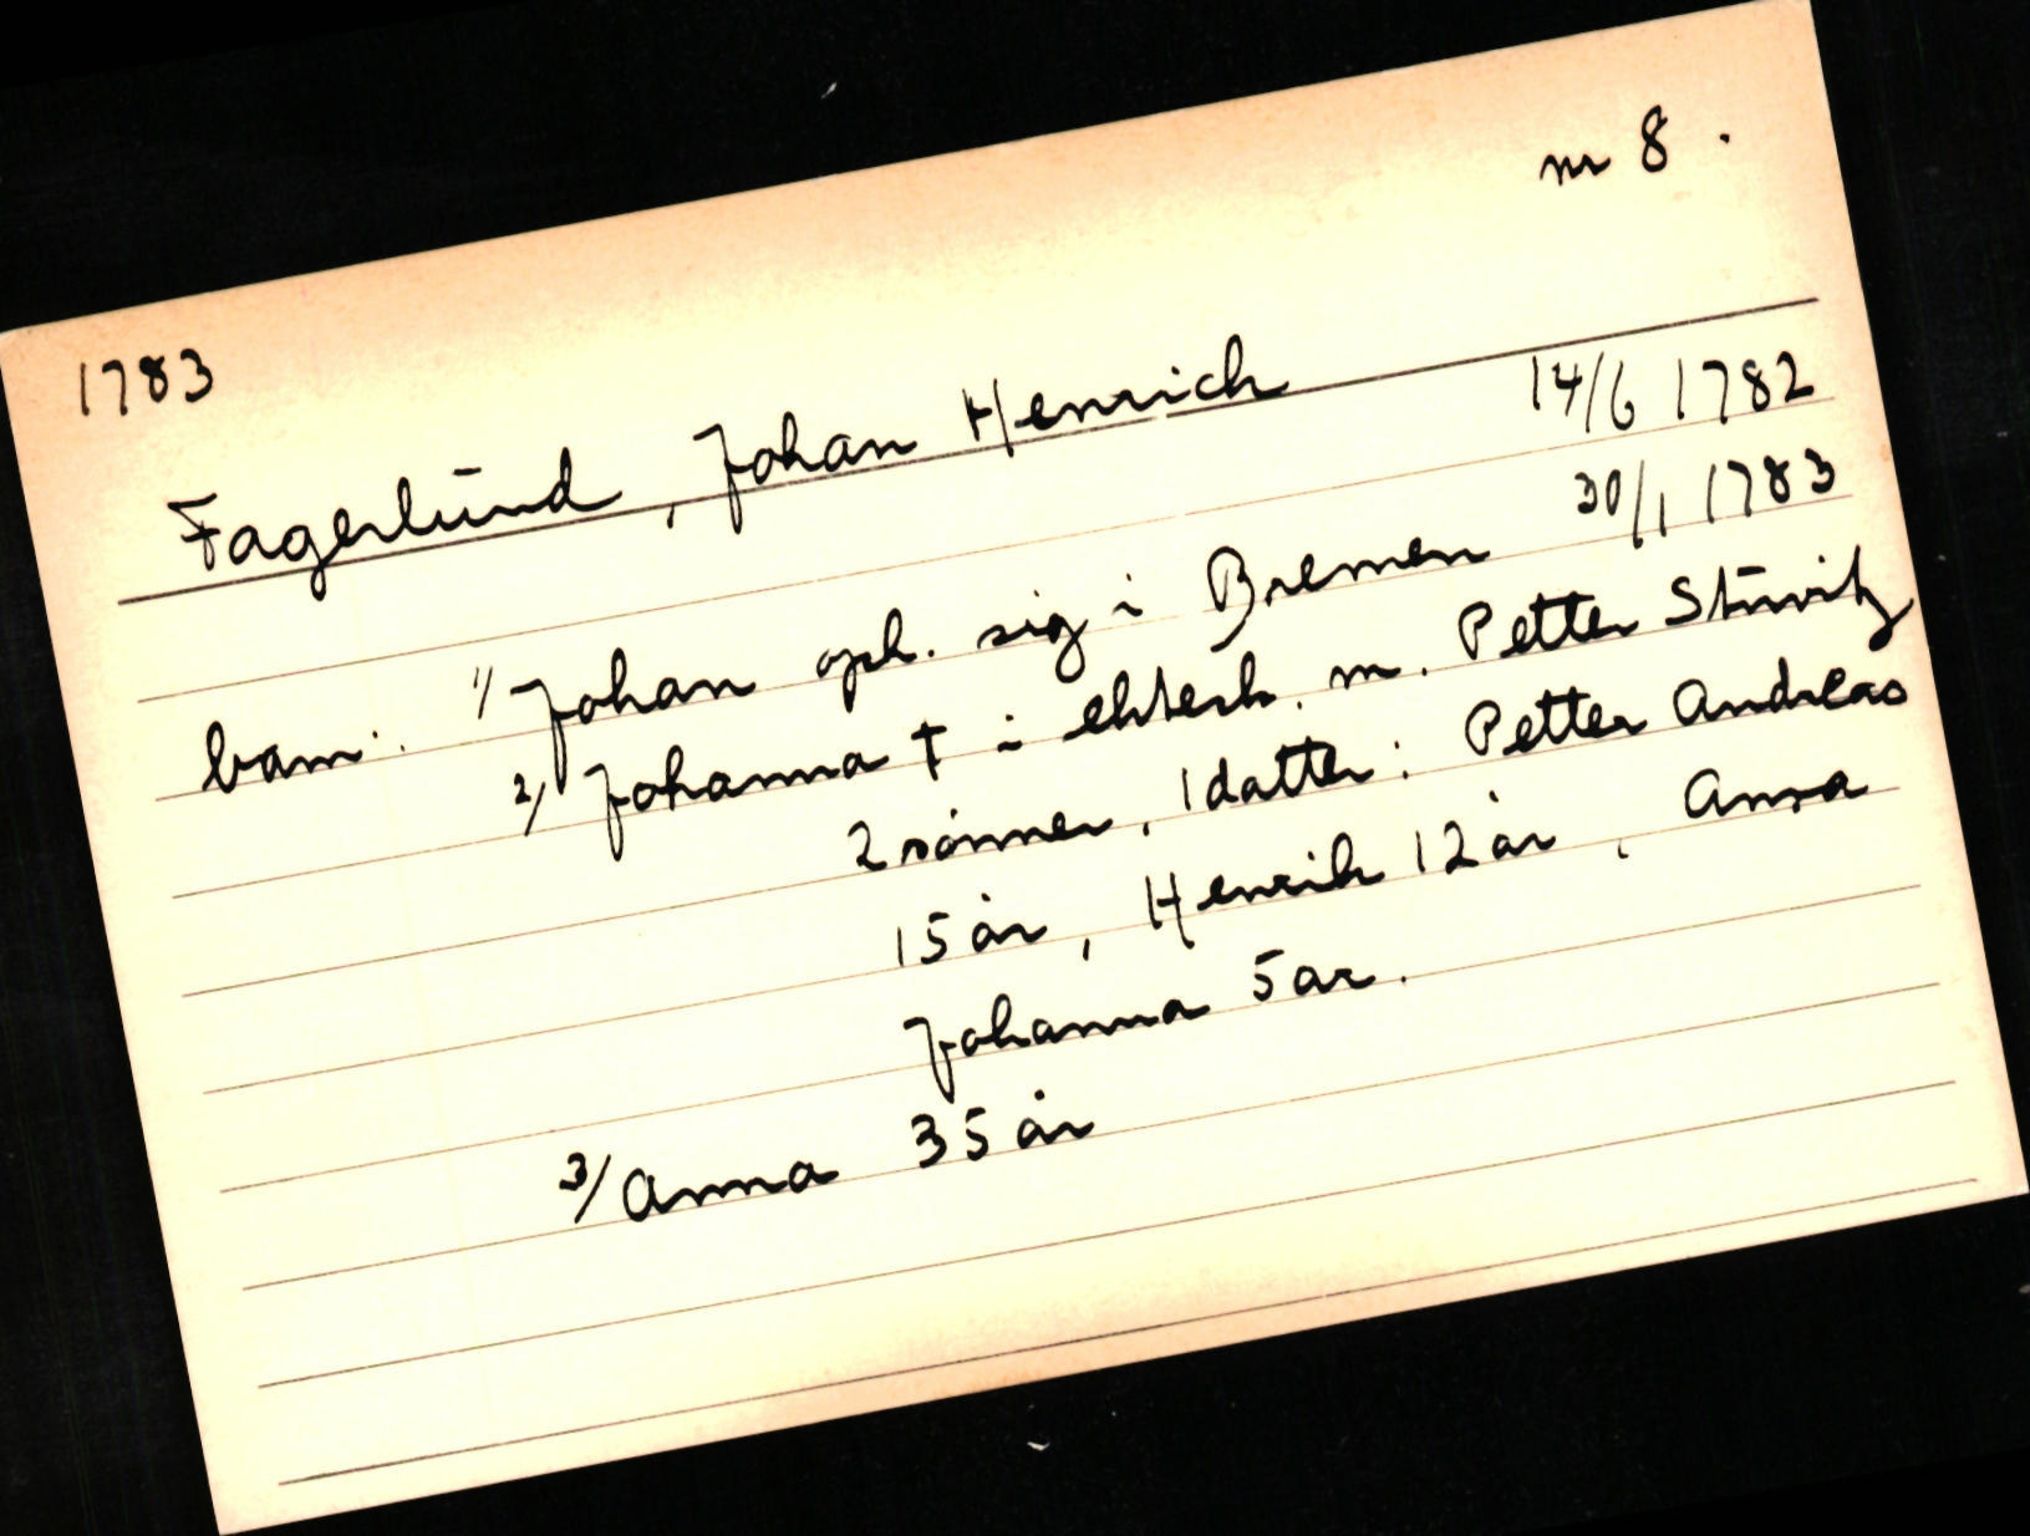 1783
nr 8.
Fagerlund, Johan Henrich
14/6 1782
30/1 1783
barn: 1/ Johan oph. sig i Bremen
2/ Johanna † i ektesk. m. Petter
2 sönner, 1 datter: Petter Andreas
15 år, Henrik 12 år, Anna
Johanna 5 ar.
3/ Anna 35 år